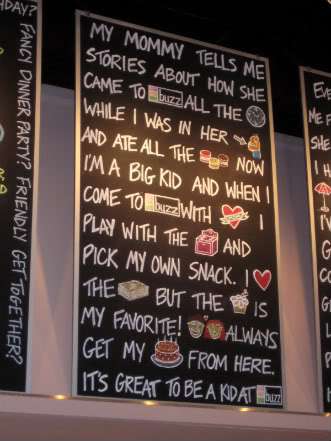 HDAY?
FANCY DINNER PARTY? FRIENDLY GET TOGETHER?
MY MOMMY TELLS ME
STORIES ABOUT HOW SHE
CAME TO buzz ALL THE
WHILE I WAS IN HER
AND ATE ALL THE NOW
I'M A BIG KID AND WHEN I
COME TO buzz WITH I
PLAY WITH THE AND
PICK MY OWN SNACK. I
THE BUT THE IS
MY FAVORITE! ALWAYS
GET MY FROM HERE.
IT'S GREAT TO BE A KID AT buzz
EVE
ME F
SHE
I H